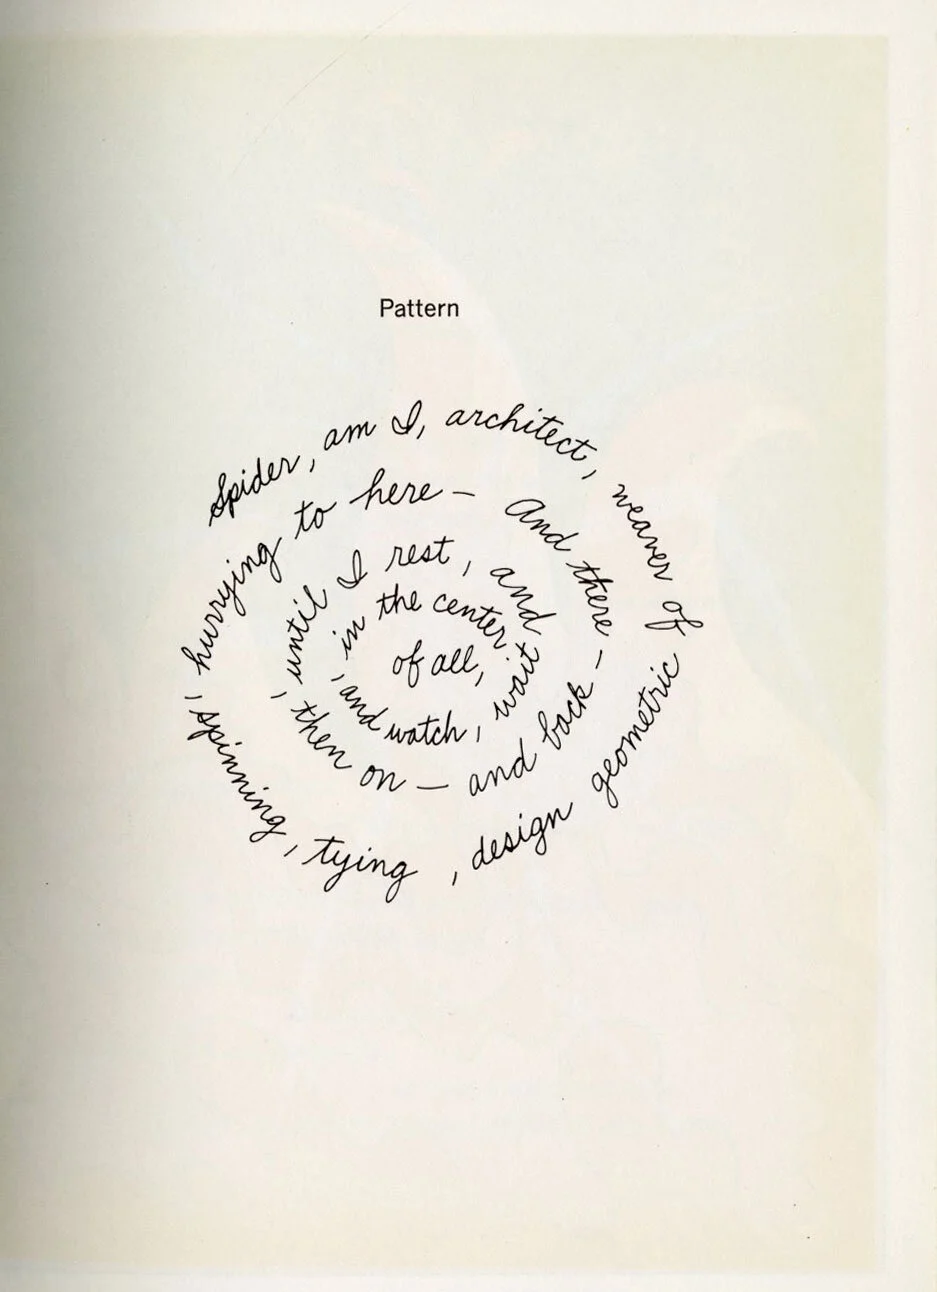 Pattern
Spider, am I, architect, weaver of geometric design, tying, spinning, hurrying to here — And there — and back — and on — then, until I rest, and wait, and watch, in the center of all,